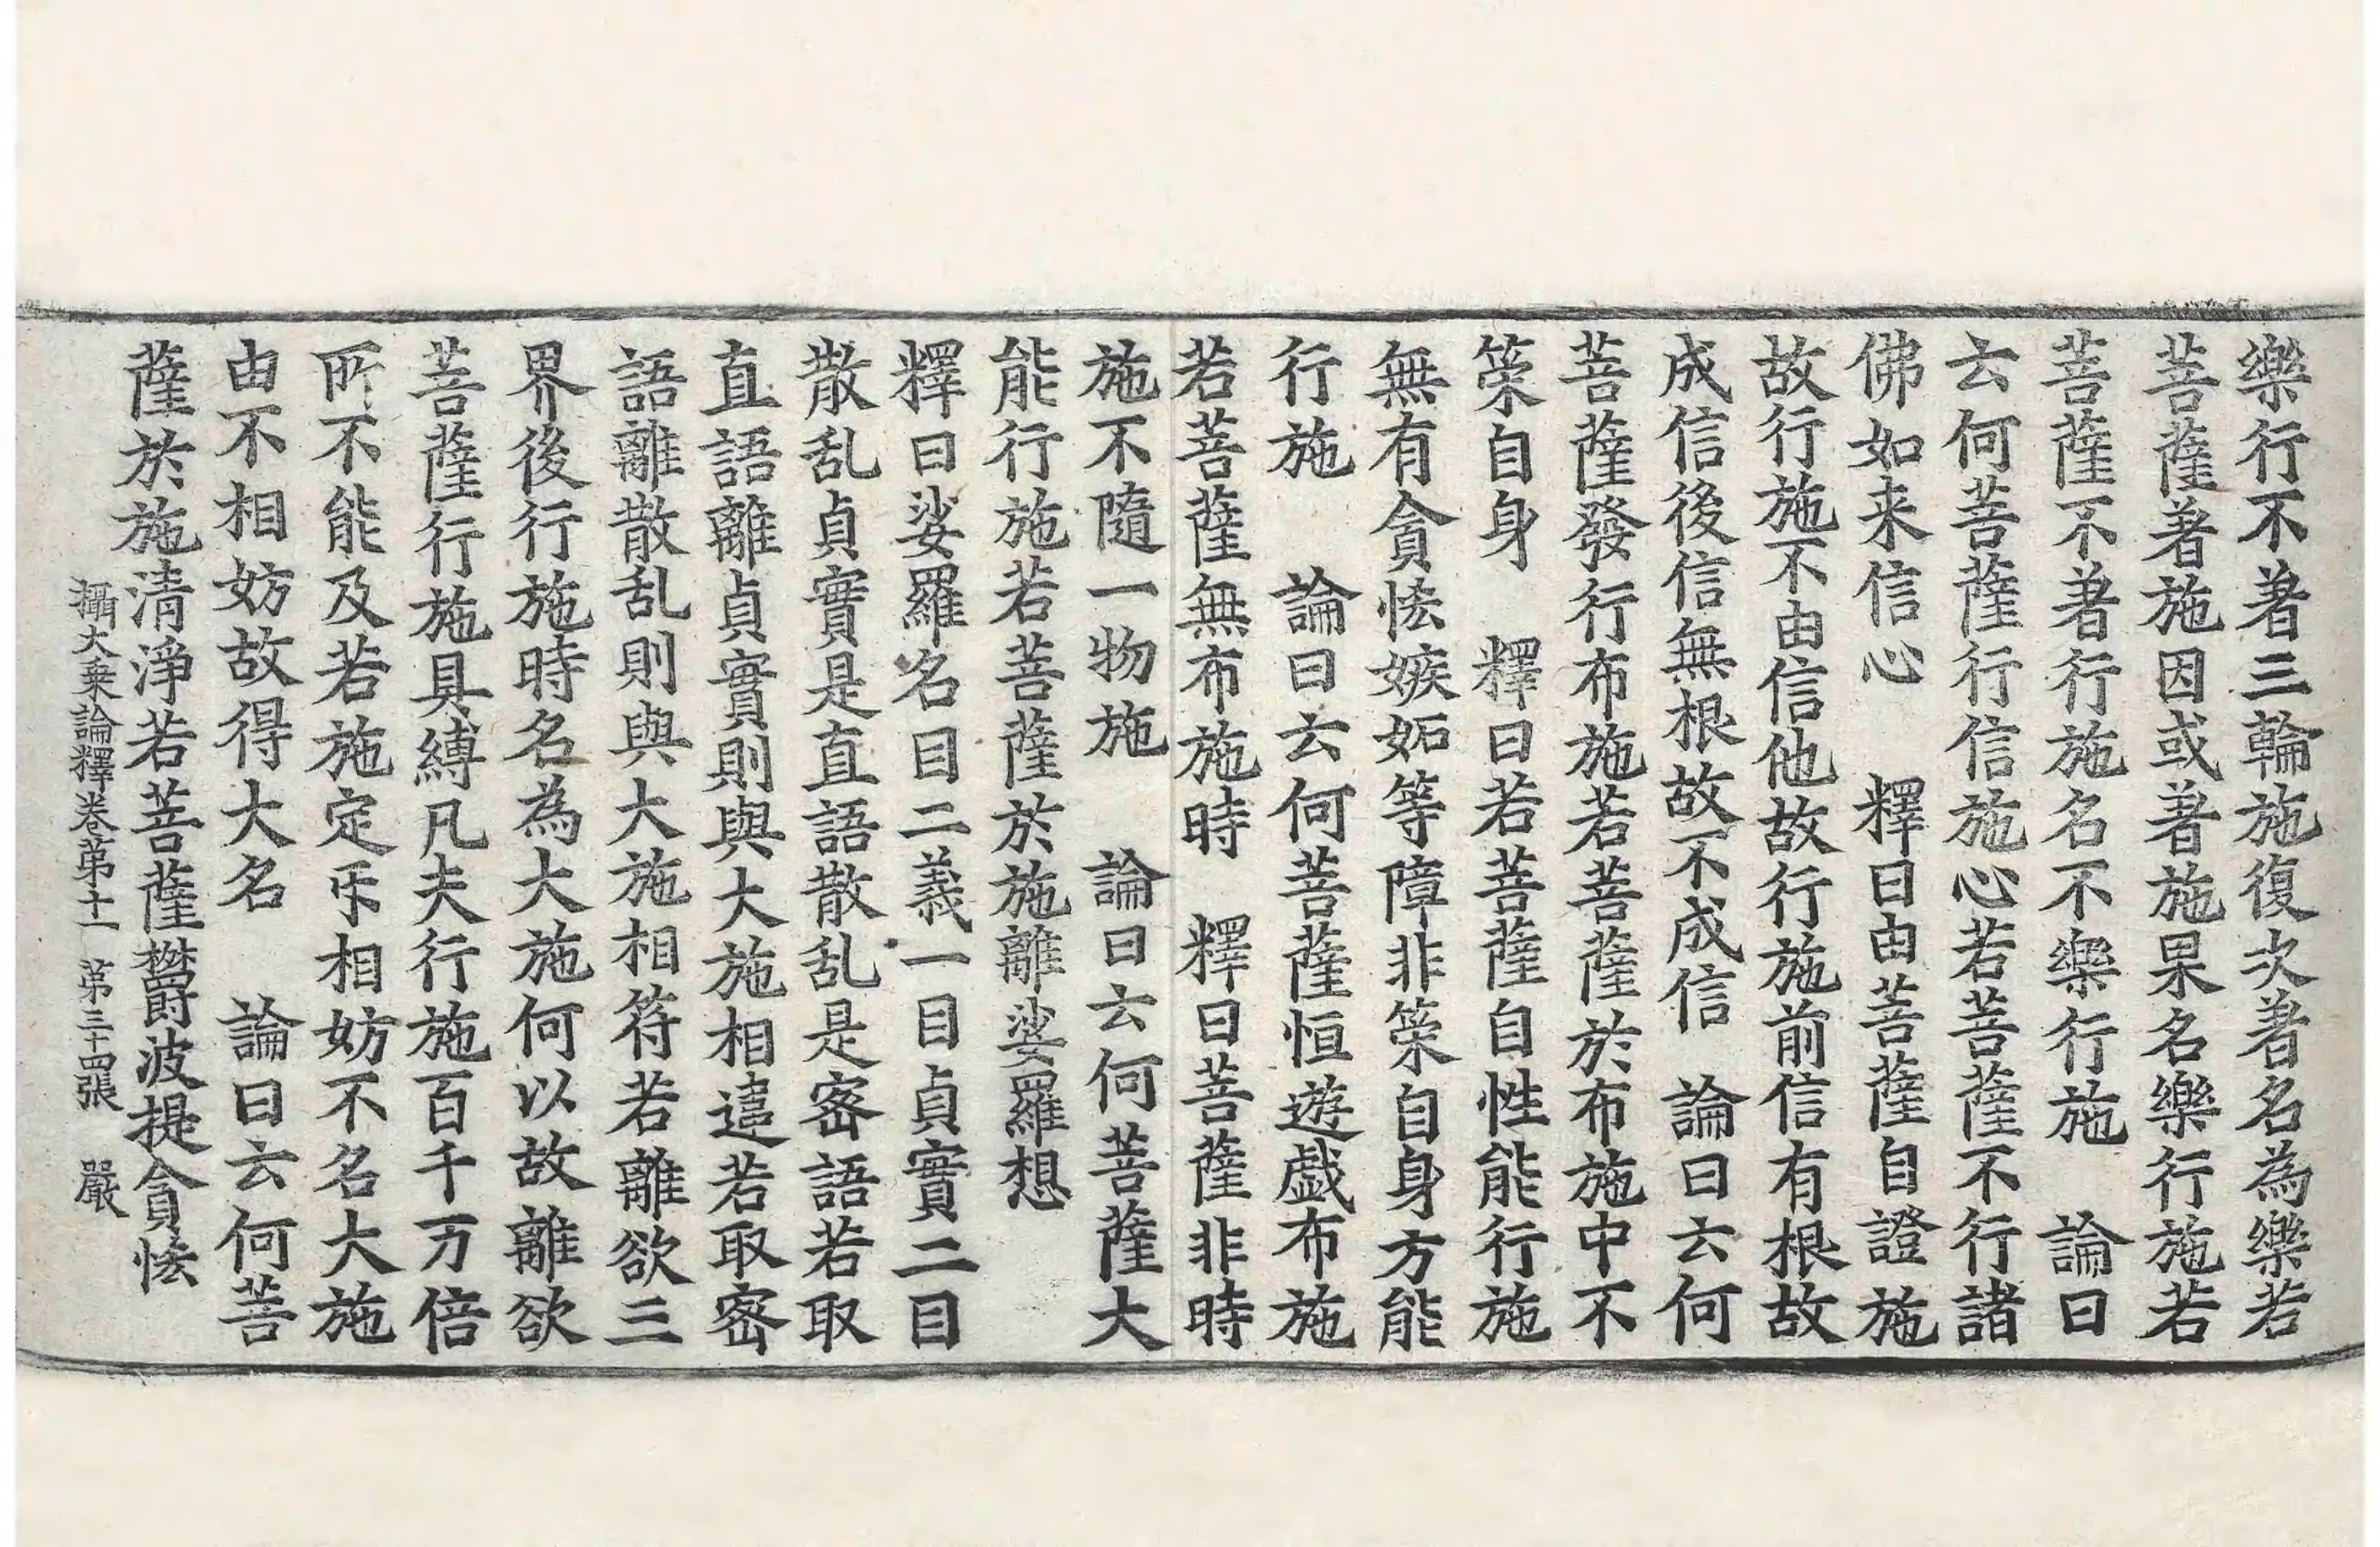 樂行不著三輪施復次著名為樂若
菩薩著施因或著施果名樂行施若
菩薩不著行施名不樂行施　論曰
云何菩薩行信施心若菩薩不行諸
佛如来信心　釋曰由菩薩自證施
故行施不由信他故行施前信有根故
成信後信無根故不成信　論曰云何
菩薩發行布施若菩薩於布施中不
策自身　釋曰若菩薩自性能行施
無有貪悋嫉妬等障非策自身方能
行施　論曰云何菩薩恒遊戲布施
若菩薩無布施時　釋曰菩薩非時
施不隨一物施　論曰云何菩薩大
能行施若菩薩於施離娑羅想
釋曰娑羅名目二義一目貞實二目
散乱貞實是直語散乱是密語若取
直語離貞實則與大施相違若取密
語離散乱則與大施相符若離欲三
界後行施時名為大施何以故離欲
菩薩行施具縛凡夫行施百千万倍
所不能及若施定㸦相妨不名大施
由不相妨故得大名　論曰云何菩
薩於施清淨若菩薩欝波提貪悋
攝大乗論釋卷第十一　第三十四張　嚴